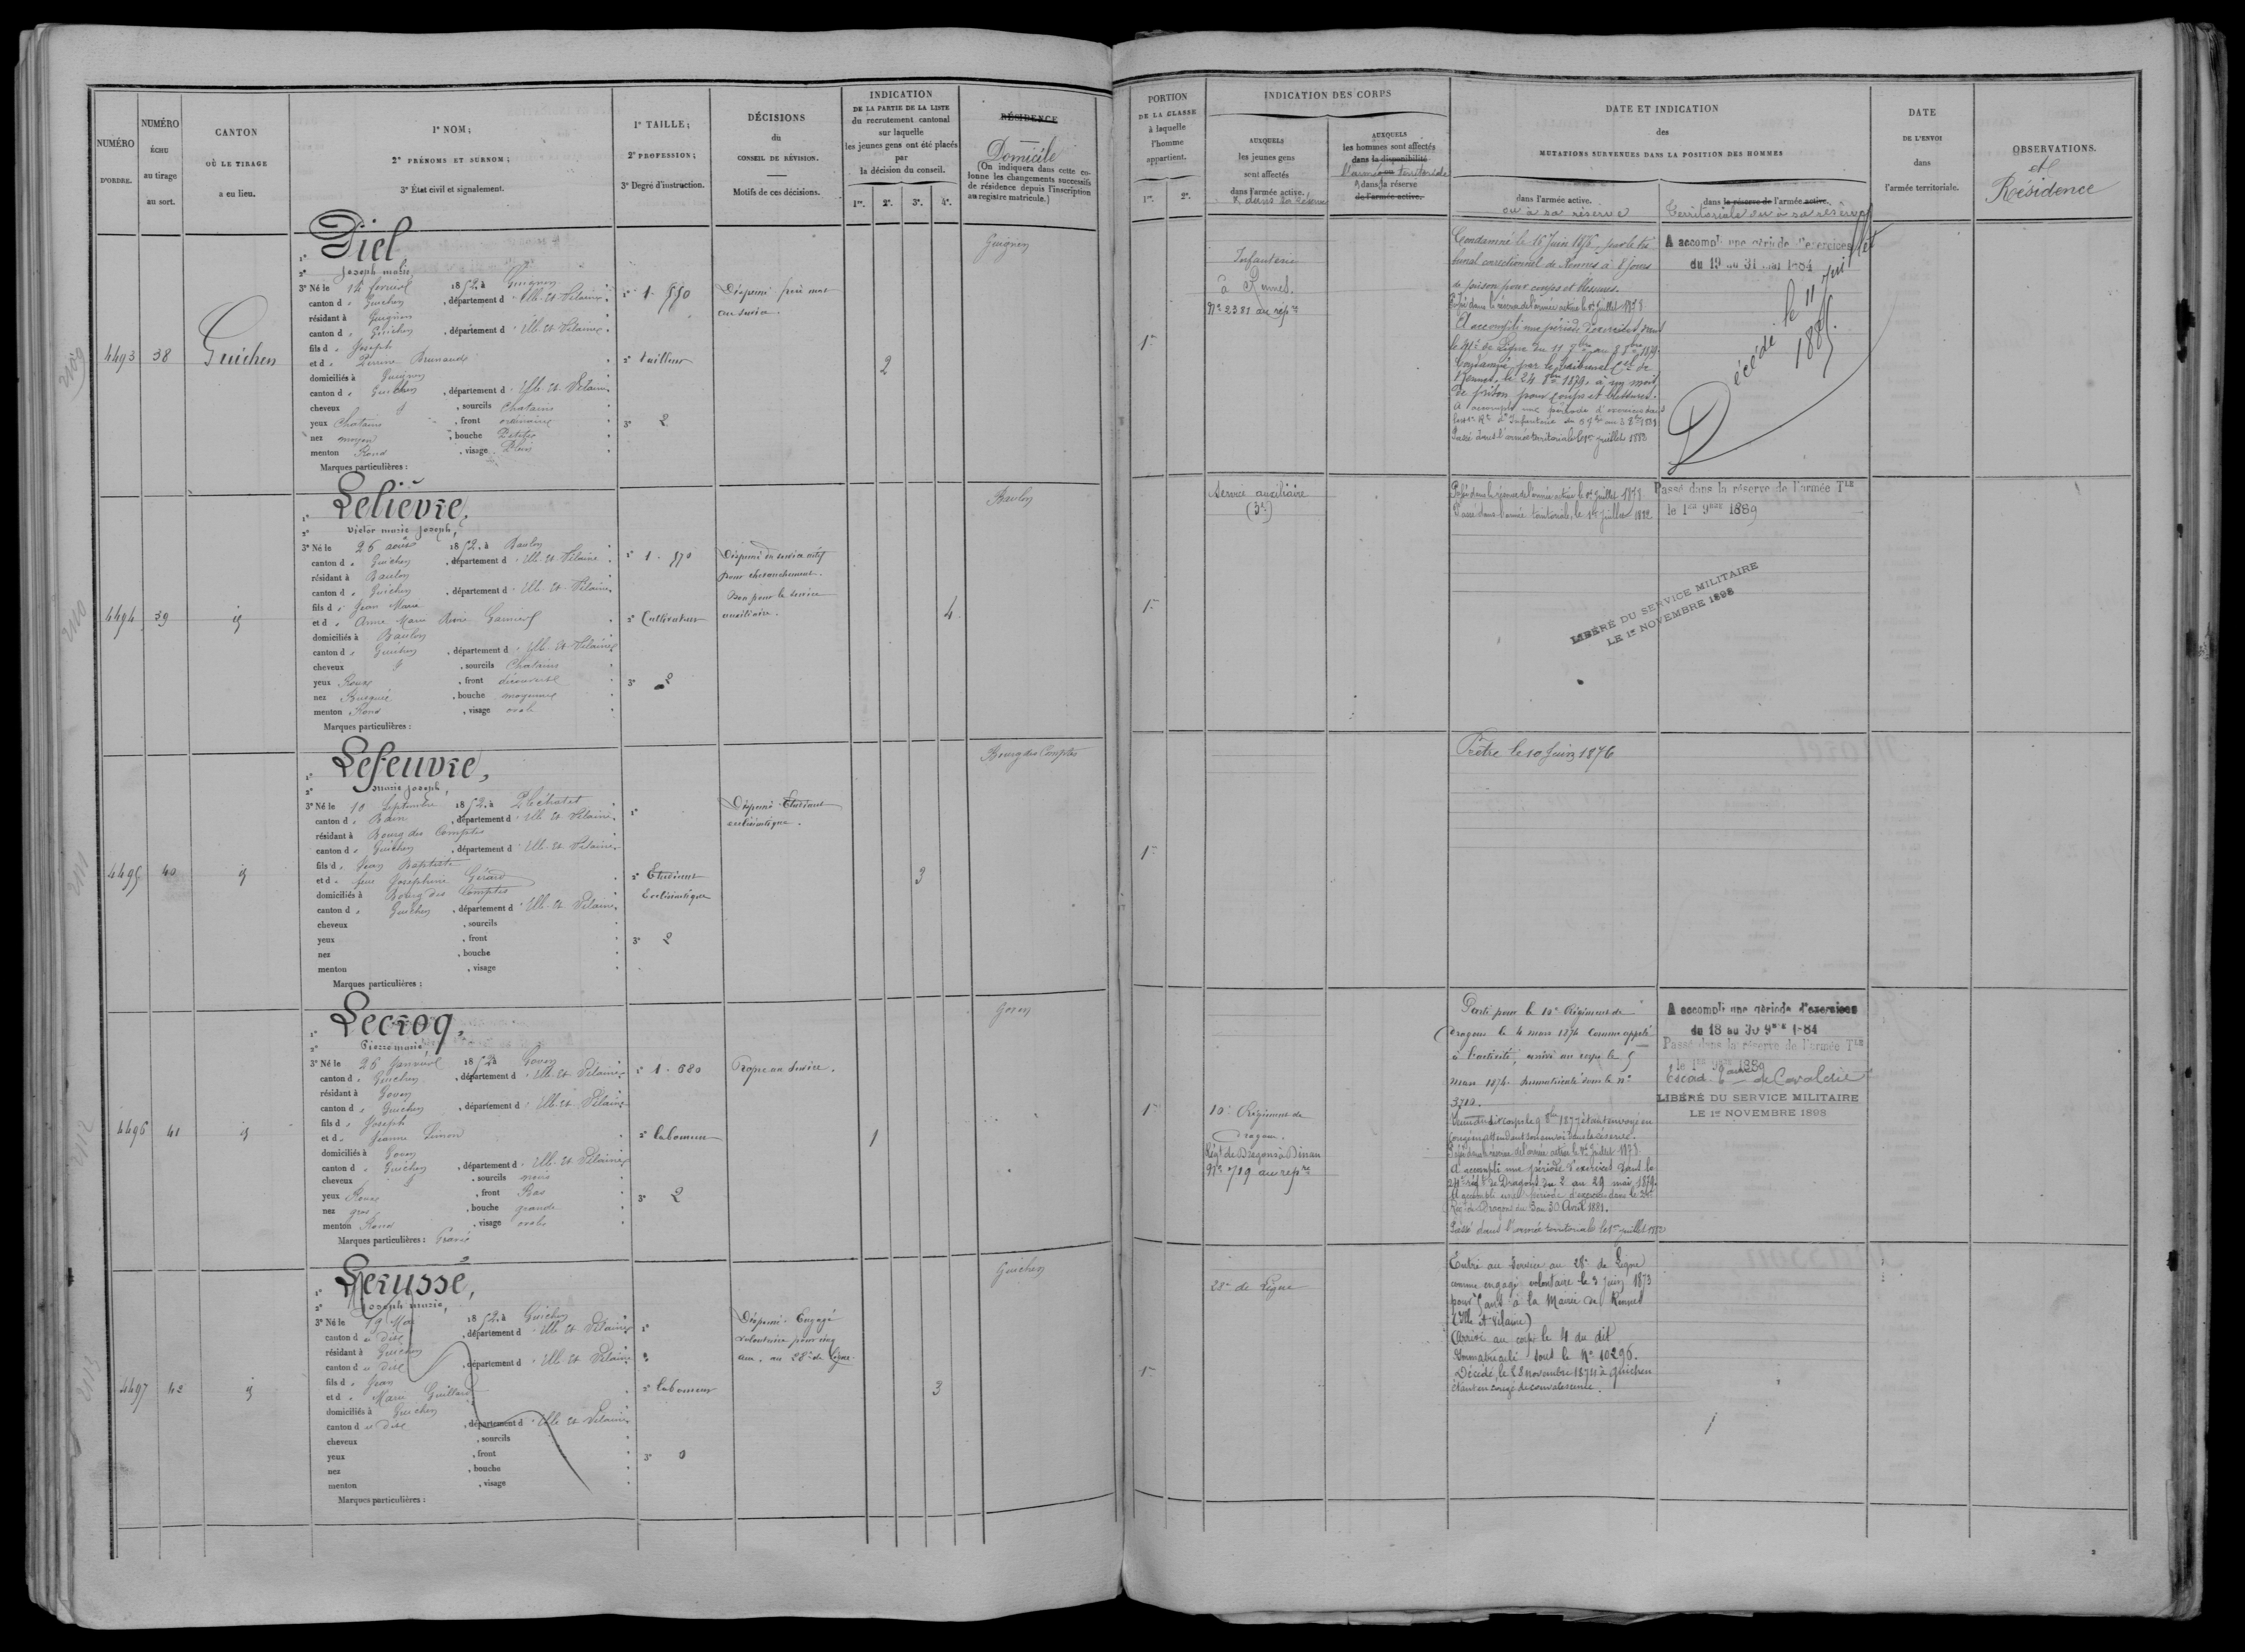 NUMÉRO
D'ORDRE.
NUMÉRO
ÉCHU
au tirage
au sort.
CANTON
OÙ LE TIRAGE
a eu lieu.
1° NOM;
2° PRÉNOMS ET SURNOM;
3° État civil et signalement.
1° TAILLE;
2° PROFESSION;
3° Degré d'instruction.
DÉCISIONS
du
CONSEIL DE RÉVISION.
Motifs de ces décisions.
INDICATION
DE LA PARTIE DE LA LISTE
du recrutement cantonal
sur laquelle
les jeunes gens ont été placés
par
la décision du conseil.
1re. 2e. 3e. 4e.
RÉSIDENCE
Domicile
(On indiquera dans cette co-
lonne les changements successifs
de résidence depuis l'inscription
au registre matricule.)
PORTION
DE LA CLASSE
à laquelle
l'homme
appartient.
1re. 2e.
INDICATION DES CORPS
AUXQUELS
les jeunes gens
sont affectés
dans l'armée active.
& dans sa réserve
AUXQUELS
les hommes sont affectés
dans la disponibilité
l'armée territoriale
ou dans la réserve
de l'armée active.
DATE ET INDICATION
des
MUTATIONS SURVENUES DANS LA POSITION DES HOMMES
dans l'armée active.
ou à sa réserve
dans la réserve de l'armée active.
Territoriale ou à sa réserve
DATE
DE L'ENVOI
dans
l'armée territoriale.
OBSERVATIONS.
et
Résidence
4493
38
Guichen
1° Diel
2° Joseph marie
3° Né le 14 février 1852, à Guignen
canton de Guichen, département d'Ille-et-Vilaine
résidant à Guignen
canton de Guichen, département d'Ille-et-Vilaine
fils de Joseph
et de Perrine Brunaud
domiciliés à Guignen
canton de Guichen, département d'Ille-et-Vilaine
cheveux d, sourcils Chatains
yeux Chatains, front ordinaire
nez moyen, bouche Petite
menton Rond, visage Plein
Marques particulières :
1° 1.550
2° tailleur
3° 2
Dispensé frère mort
au service.
2
Guignen
1re
Infanterie
à Rennes.
N° 2381 au répre
Condamné le 16 Juin 1876, par le tri
bunal correctionnel de Rennes à 8 jours
de prison pour coups et blessures.
Passé dans la réserve de l'armée active le 1er Juillet 1878
A accompli une période d'exercices dans
le 41e de Ligne du 11 7bre au 8 8bre 1879.
Condamné par le tribunal Cel de
Rennes, le 24 8bre 1879, à un mois
de prison pour coups et blessures.
A accompli une période d'exercices dans
Passé dans l'armée territoriale le 1er juillet 1882
A accompli une période d'exercices
du 19 au 31 mai 1884
Décédé le 11 juillet
1885.
4494
39
id
1° Lelièvre,
2° Victor marie Joseph,
3° Né le 26 août 1852, à Baulon
canton de Guichen, département d'Ille-et-Vilaine
résidant à Baulon
canton de Guichen, département d'Ille-et-Vilaine
fils de Jean Marie
et de Anne Marie Reine Garnier
domiciliés à Baulon
canton de Guichen, département d'Ille-et-Vilaine
cheveux d, sourcils Chatains
yeux Roux, front découvert
nez Busqué, bouche moyenne
menton Rond, visage ovale
Marques particulières :
1° 1.570
2° Cultivateur
3° 2
Dispensé du service actif
pour
Bon pour le service
auxiliaire.
4
Baulon
1re
Service auxiliaire
(3e)
Passé dans la réserve de l'armée active le 1er Juillet 1878
Passé dans l'armée territoriale, le 1er Juillet 1882
Passé dans la réserve de l'armée Tle
le 1er 9bre 1889
LIBÉRÉ DU SERVICE MILITAIRE
LE 1er NOVEMBRE 1898
4495
40
id
1° Lefeuvre,
2° marie Joseph,
3° Né le 10 Septembre 1852, à Pléchatel
canton de Bain, département d'Ille-et-Vilaine
résidant à Bourg des Comptes
canton de Guichen, département d'Ille-et-Vilaine
fils de Jean Baptiste
et de feue Joséphine Gérard
domiciliés à Bourg des Comptes
canton de Guichen, département d'Ille-et-Vilaine
cheveux, sourcils
yeux, front
nez, bouche
menton, visage
Marques particulières :
1°
2° Etudiant
Ecclésiastique
3° 2
Dispensé. Etudiant
ecclésiastique.
3
Bourg des Comptes
1re
Prêtre le 10 Juin 1876
4496
41
id
1° Lecroq,
2° Pierre marie,
3° Né le 26 Janvier 1852 à Goven
canton de Guichen, département d'Ille-et-Vilaine
résidant à Goven
canton de Guichen, département d'Ille-et-Vilaine
fils de Joseph
et de Jeanne Simon
domiciliés à Goven
canton de Guichen, département d'Ille-et-Vilaine
cheveux d, sourcils noirs
yeux Roux, front Bas
nez gros, bouche grande
menton Rond, visage ovale
Marques particulières : Gravé
1° 1.680
2° laboureur
3° 2
Propre au service.
1
Goven
1re
10e Régiment de
Dragons.
Régt de Dragons à Dinan
N° 719 au répre
Parti pour le 10e Régiment de
Dragons le 4 mars 1874 comme appelé
à l'activité, arrivé au corps le 5
mars 1874. Immatriculé sous le n°
3710.
congé en attendant son envoi dans la réserve.
Passé dans la réserve de l'armée active le 1er Juillet 1878
A accompli une période d'exercices dans le
24e régt de Dragons du 2 au 29 mai 1879.
A accompli une période d'exercices dans le 24e
Régt de Dragons du 3 au 30 Avril 1881.
Passé dans l'armée territoriale le 1er juillet 1882
A accompli une période d'exercices
du 18 au 30 9bre 1884
Passé dans la réserve de l'armée Tle
le 1er 9bre 1889
Escad. de Cavalerie
LIBÉRÉ DU SERVICE MILITAIRE
LE 1er NOVEMBRE 1898
4497
42
id
1° Lerusse,
2° Joseph marie,
3° Né le 19 Mai 1852, à Guichen
canton du dit, département d'Ille-et-Vilaine
résidant à Guichen
canton du dit, département d'Ille-et-Vilaine
fils de Jean
et de Marie Guillard
domiciliés à Guichen
canton du dit, département d'Ille-et-Vilaine
cheveux, sourcils
yeux, front
nez, bouche
menton, visage
Marques particulières :
1°
2° laboureur
3° 0
Dispensé. Engagé
volontaire pour cinq
ans, au 28e de ligne.
3
Guichen
1re
28e de Ligne
Entré au service au 28e de Ligne
comme engagé volontaire le 3 Juin 1873
pour 5 ans à la Mairie de Rennes
(Ille et Vilaine)
Arrivé au corps le 4 du dit
Immatriculé sous le N° 10296.
Décédé, le 28 novembre 1874 à Guichen
étant en congé de convalescence.